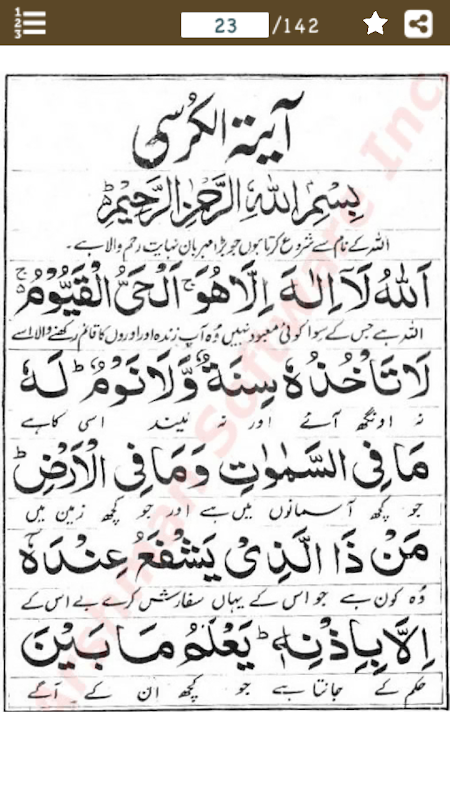 1 2 3
23 /142
آیة الکرسی
بِسْمِ اللهِ الرَّحْمٰنِ الرَّحِیْمِ ؕ
اللہ کے نام سے شروع کرتا ہوں جو بڑا مہربان نہایت رحم والا ہے۔
اَللهُ لَآ اِلٰهَ اِلَّا هُوَ ۚ اَلْحَیُّ الْقَیُّوْمُ ۚ
اللہ ہے جس کے سوا کوئی معبود نہیں وہ آپ زندہ اور اوروں کا قائم رکھنے والا اسے
لَا تَاْخُذُهٗ سِنَةٌ وَّلَا نَوْمٌ ؕ لَهٗ
نہ اونگھ آئے اور نہ نیند اسی کا ہے
مَا فِی السَّمٰوٰتِ وَمَا فِی الْاَرْضِ ؕ
جو کچھ آسمانوں میں ہے اور جو کچھ زمین میں
مَنْ ذَا الَّذِیْ یَشْفَعُ عِنْدَهٗۤ
وہ کون ہے جو اس کے یہاں سفارش کرے بے اس کے
اِلَّا بِاِذْنِهٖ ؕ یَعْلَمُ مَا بَیْنَ
حکم کے جانتا ہے جو کچھ ان کے آگے
Arshman Software Inc.